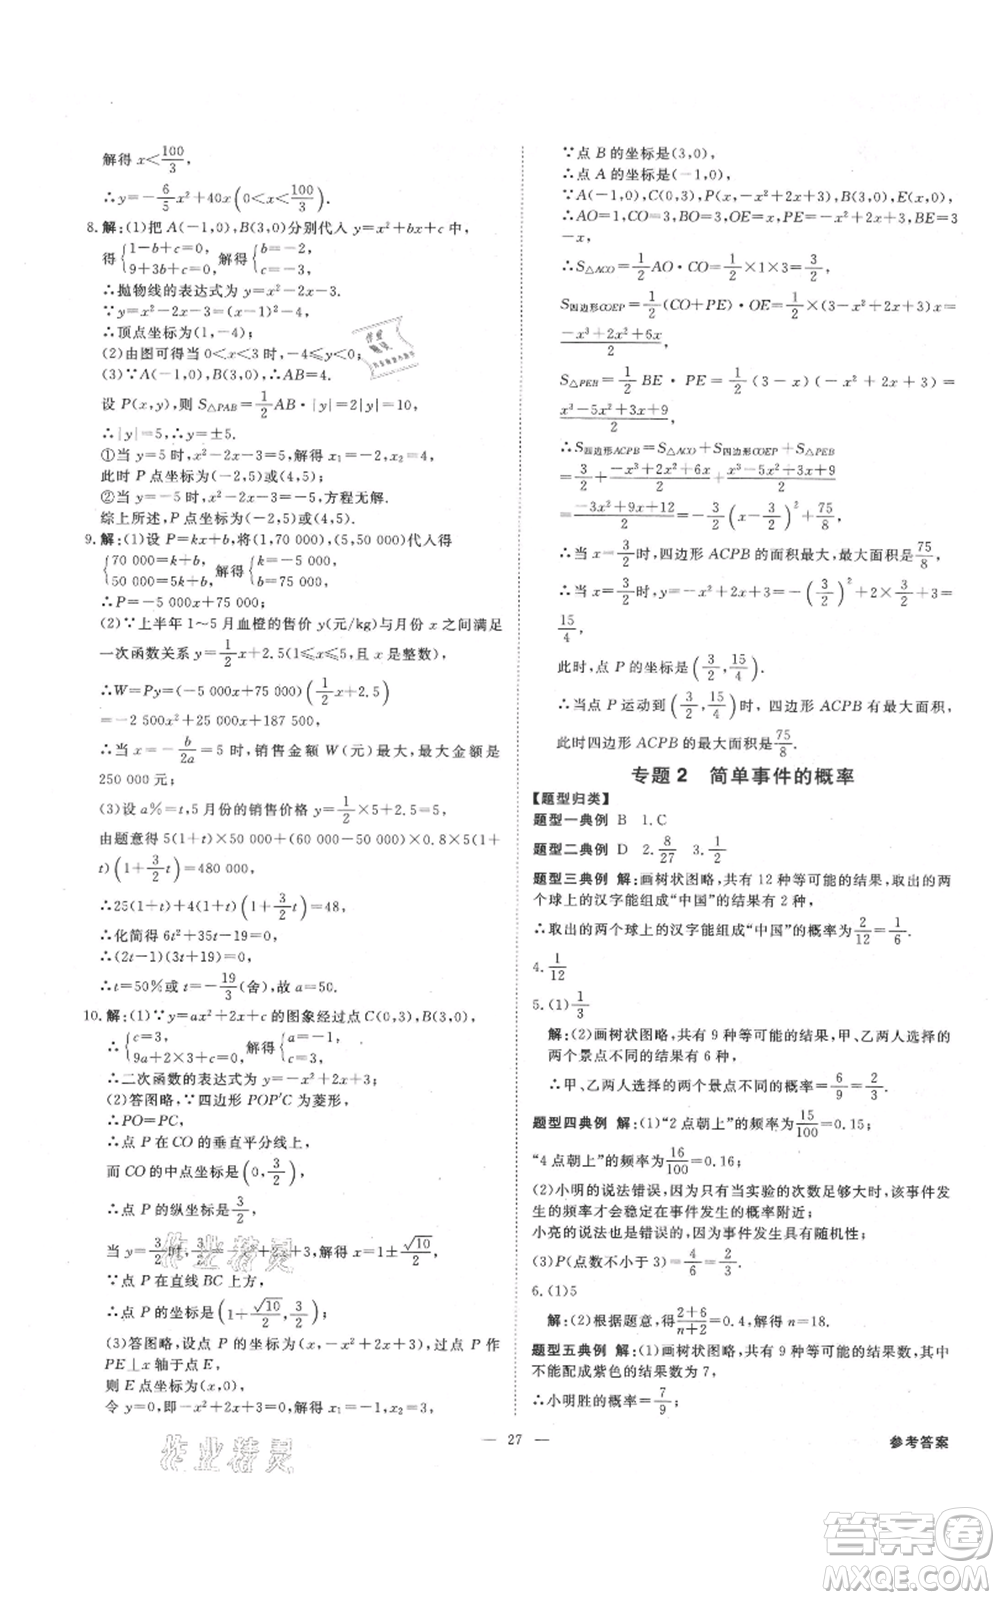 解得 x<100/3,
∴y=-6/5x²+40x(0<x<100/3).
8.解:(1)把 A(-1,0),B(3,0)分别代入 y=x²+bx+c 中,
得{1-b+c=0, 9+3b+c=0, 解得{b=-2, c=-3.
∴抛物线的表达式为 y=x²-2x-3.
∵y=x²-2x-3=(x-1)²-4,
∴顶点坐标为(1,-4);
(2)由图可得当 0<x<3 时,-4≤y<0;
(3)∵A(-1,0),B(3,0),∴AB=4.
设 P(x,y),则 S△PAB=1/2AB·|y|=2|y|=10,
∴|y|=5,∴y=±5.
①当 y=5 时,x²-2x-3=5,解得 x₁=-2,x₂=4,
此时 P 点坐标为(-2,5)或(4,5);
②当 y=-5 时,x²-2x-3=-5,方程无解.
综上所述,P 点坐标为(-2,5)或(4,5).
9.解:(1)设 P=kx+b,将(1,70 000),(5,50 000)代入得
{70 000=k+b, 50 000=5k+b, 解得{k=-5 000, b=75 000,
∴P=-5 000x+75 000;
(2)∵上半年 1~5 月血橙的售价 y(元/kg)与月份 x 之间满足
一次函数关系 y=1/2x+2.5(1≤x≤5,且 x 是整数),
∴W=Py=(-5 000x+75 000)(1/2x+2.5)
=-2 500x²+25 000x+187 500,
∴当 x=-b/2a=5 时,销售金额 W(元)最大,最大金额是
250 000 元;
(3)设 a%=t,5 月份的销售价格 y=1/2×5+2.5=5,
由题意得 5(1+t)×50 000+(60 000-50 000)×0.8×5(1+
t)(1+3/2t)=480 000,
∴25(1+t)+4(1+t)(1+3/2t)=48,
∴化简得 6t²+35t-19=0,
∴(2t-1)(3t+19)=0,
∴t=50%或 t=-19/3(舍),故 a=50.
10.解:(1)∵y=ax²+2x+c 的图象经过点 C(0,3),B(3,0),
∴{c=3, 9a+2×3+c=0, 解得{a=-1, c=3.
∴二次函数的表达式为 y=-x²+2x+3;
(2)答图略,∵四边形 POP′C 为菱形,
∴PO=PC,
∴点 P 在 CO 的垂直平分线上,
而 CO 的中点坐标是(0,3/2),
∴点 P 的纵坐标是3/2,
当 y=3/2时,-x²+2x+3=3/2,解得 x=1±√10/2,
∵点 P 在直线 BC 上方,
∴点 P 的坐标是(1+√10/2,3/2);
(3)答图略,设点 P 的坐标为(x,-x²+2x+3),过点 P 作
PE⊥x 轴于点 E,
则 E 点坐标为(x,0),
令 y=0,即-x²+2x+3=0,解得 x₁=-1,x₂=3,
∵点 B 的坐标是(3,0),
∴点 A 的坐标是(-1,0),
∵A(-1,0),C(0,3),P(x,-x²+2x+3),B(3,0),E(x,0),
∴AO=1,CO=3,OB=3,OE=x,PE=-x²+2x+3,BE=3
-x,
∴S△ACO=1/2AO·CO=1/2×1×3=3/2,
S四边形COEP=1/2(CO+PE)·OE=1/2x(3-x²+2x+3)=
(-x³+2x²+6x)/2,
S△PEB=1/2BE·PE=1/2(3-x)(-x²+2x+3)=
(x³-5x²+3x+9)/2,
∴S四边形ACPB=S△ACO+S四边形COEP+S△PEB
=3/2+(-x³+2x²+6x)/2+(x³-5x²+3x+9)/2
=(-3x²+9x+12)/2=-3/2(x-3/2)²+75/8,
∴当 x=3/2时,四边形 ACPB 的面积最大,最大值是75/8,
∴当 x=3/2时,y=-x²+2x+3=-(3/2)²+2×3/2+3=
15/4,
此时,点 P 的坐标是(3/2,15/4).
∴当点 P 运动到(3/2,15/4)时,四边形 ACPB 有最大面积,
此时四边形 ACPB 的最大面积是75/8.
专题 2 简单事件的概率
【题型归类】
题型一典例 B 1.C
题型二典例 D 2.8/27 3.1/2
题型三典例 解:画树状图略,共有 12 种等可能的结果,取出的
两个球上的汉字能组成“中国”的结果有 2 种,
∴取出的两个球上的汉字能组成“中国”的概率为2/12=1/6.
4.1/12
5.(1)1/3
解:(2)画树状图略,共有 9 种等可能的结果,甲、乙两人选择的
两个景点不同的结果有 6 种,
∴甲、乙两人选择的两个景点不同的概率为6/9=2/3.
题型四典例 解:(1)“2 点朝上”的频率为15/100=0.15;
“4 点朝上”的频率为16/100=0.16;
(2)小明的说法错误,因为只有当实验的次数足够大时,该事件发
生的频率才会稳定在事件发生的概率附近;
小亮的说法也是错误的,因为事件发生具有随机性;
(3)P(点数不小于 3)=4/6=2/3.
6.(1)5
解:(2)根据题意,得(2+6)/(n+2)=0.4,解得 n=18.
题型五典例 解:(1)画树状图略,共有 9 种等可能的结果,其中
不能配成紫色的结果数为 7,
∴小明胜的概率=7/9;
— 27 —
参考答案
作业精灵
作业精灵
答案卷
MXQE.COM